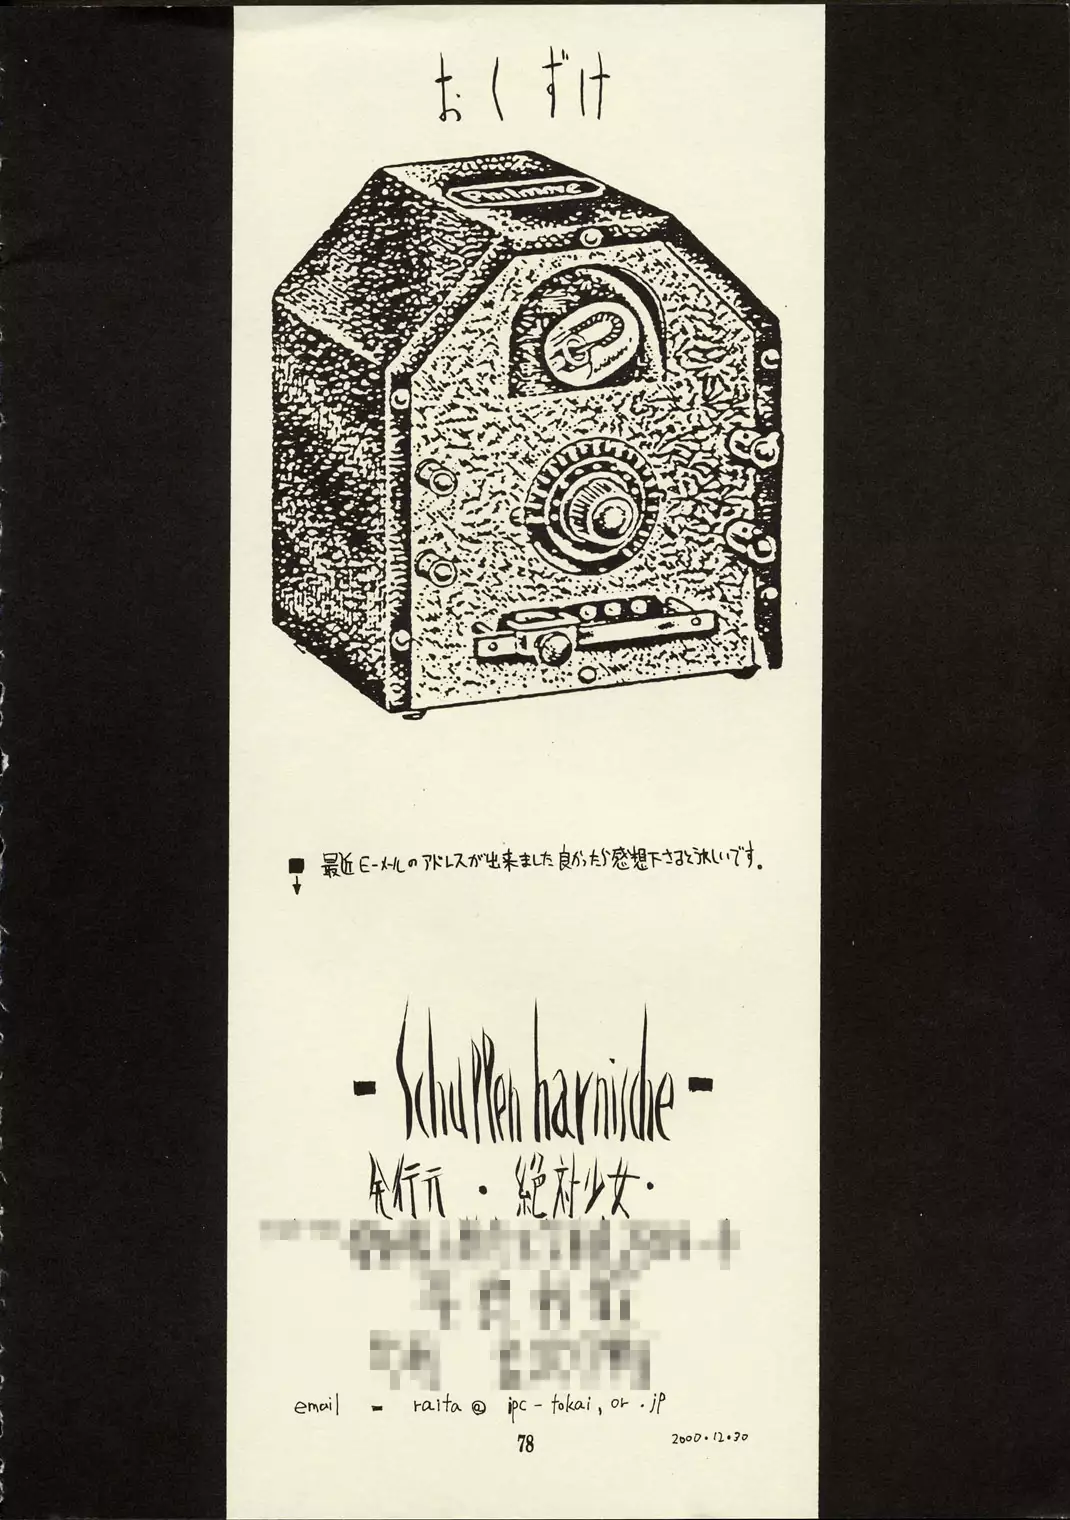 おくずけ
Pinlmove
■ 最近E-メールのアドレスが出来ました良かったら感想下さるとうれしいです。
↓
- Schuppen harnische -
発行元・絶対少女・
email - raita@ipc-tokai,or.jp
78
2000.12.30